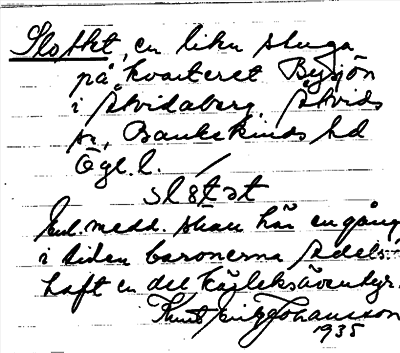 Slottet, en liten stuga
på kvarteret Bysjön
i Åtvidaberg, Åtvids
sn, Bankekinds hd
Ögl. l. /
slɵtət
Enl. medd. skall här en gång
i tiden baronerna Adels-
haft en del kärleksäventyr.
Knut Erik Johansson
1935